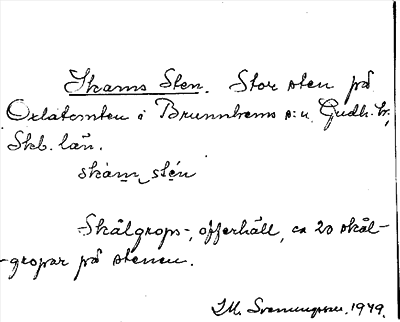 Skams Sten. Stor sten på
Oxlatomten i Brunnhems s:n, Gudh. hr,
Skb. län.
skam stén
Skålgrops-, offerhäll, ca 20 skål-
-gropar på stenen.
1979.